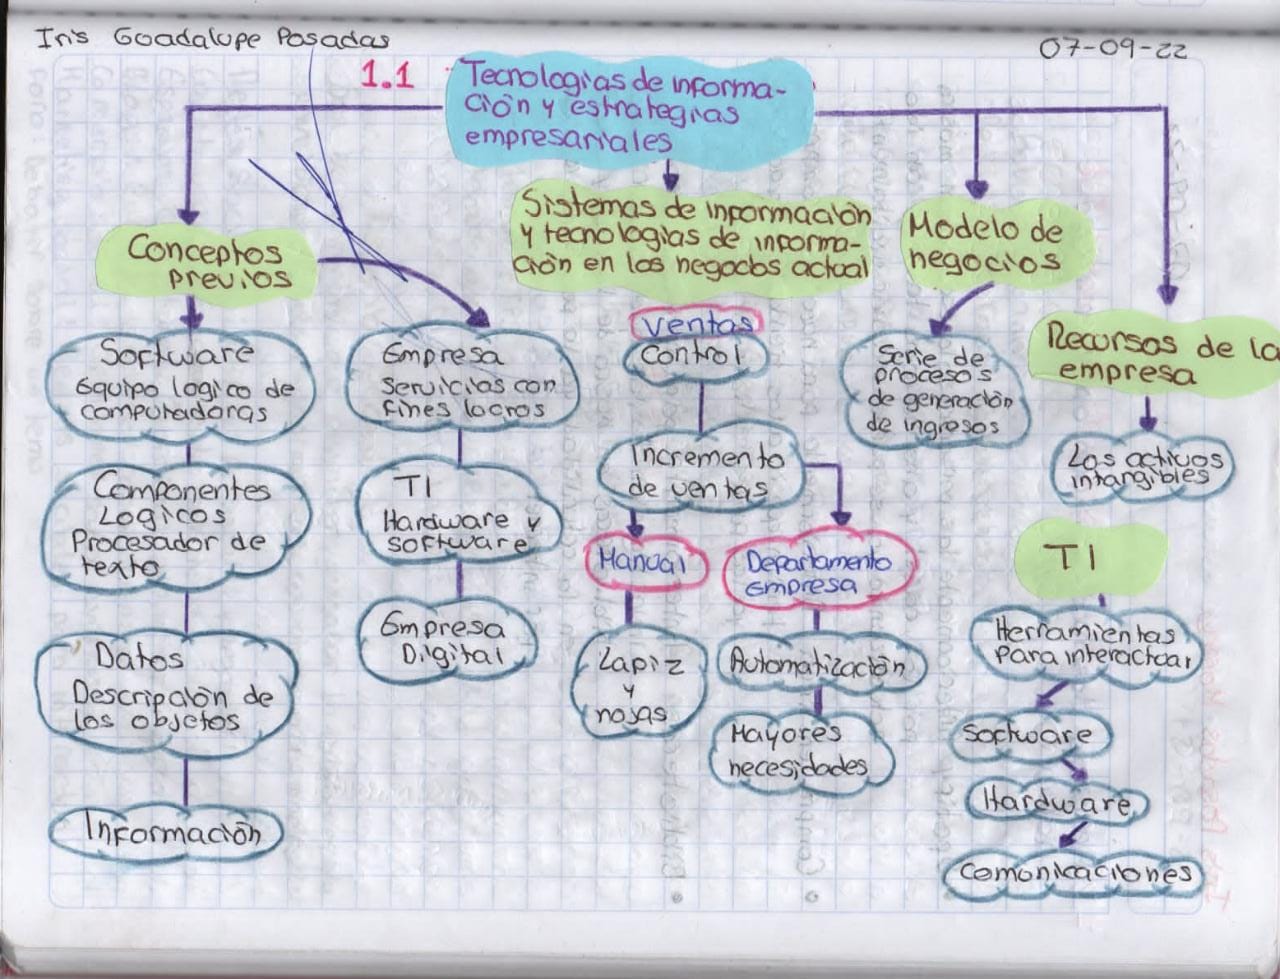 Iris Guadalupe Posadas
07-09-22
1.1
Tecnologias de informa-
ción y estrategias
empresariales
Conceptos
previos
Software
Equipo logico de
computadoras
Componentes
Logicos
Procesador de
texto
Datos
Descripción de
los objetos
Información
Empresa
Servicios con
fines lucros
TI
Hardware y
software
Empresa
Digital
Sistemas de información
y tecnologias de informa-
ción en los negocios actual
Ventas
Control
Incremento
de ventas
Manual
Lapiz
y
hojas
Departamento
Empresa
Automatización
Mayores
necesidades
Modelo de
negocios
Serie de
procesos
de generación
de ingresos
Recursos de la
empresa
Los activos
intangibles
TI
Herramientas
para interactuar
Software
Hardware
Comunicaciones